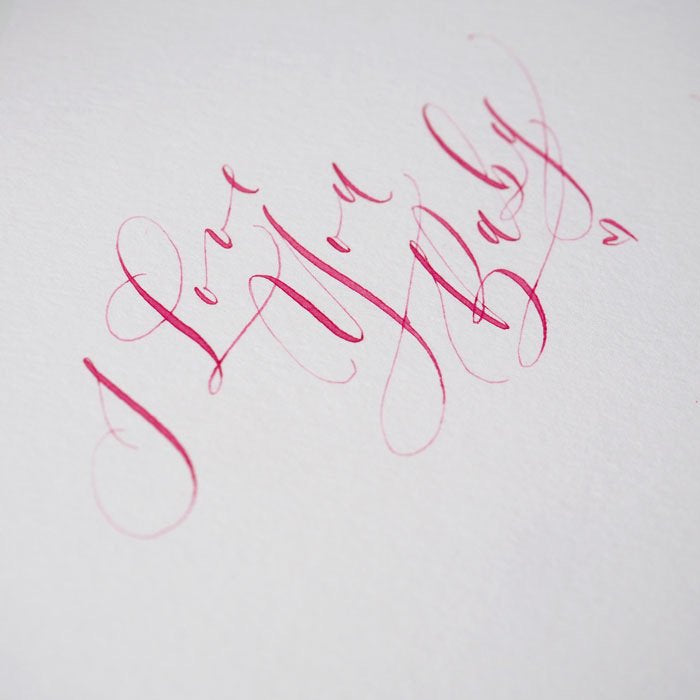 I Love You Baby ♡